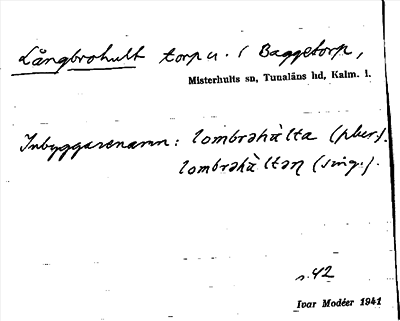 Långbrohult torp u. / Baggetorp,
Misterhults sn, Tunaläns hd, Kalm. l.
Inbyggarenamn: lombrəhùlta (plur.).
lombrəhùltən (sing.).
s. 42
Ivar Modéer 1941